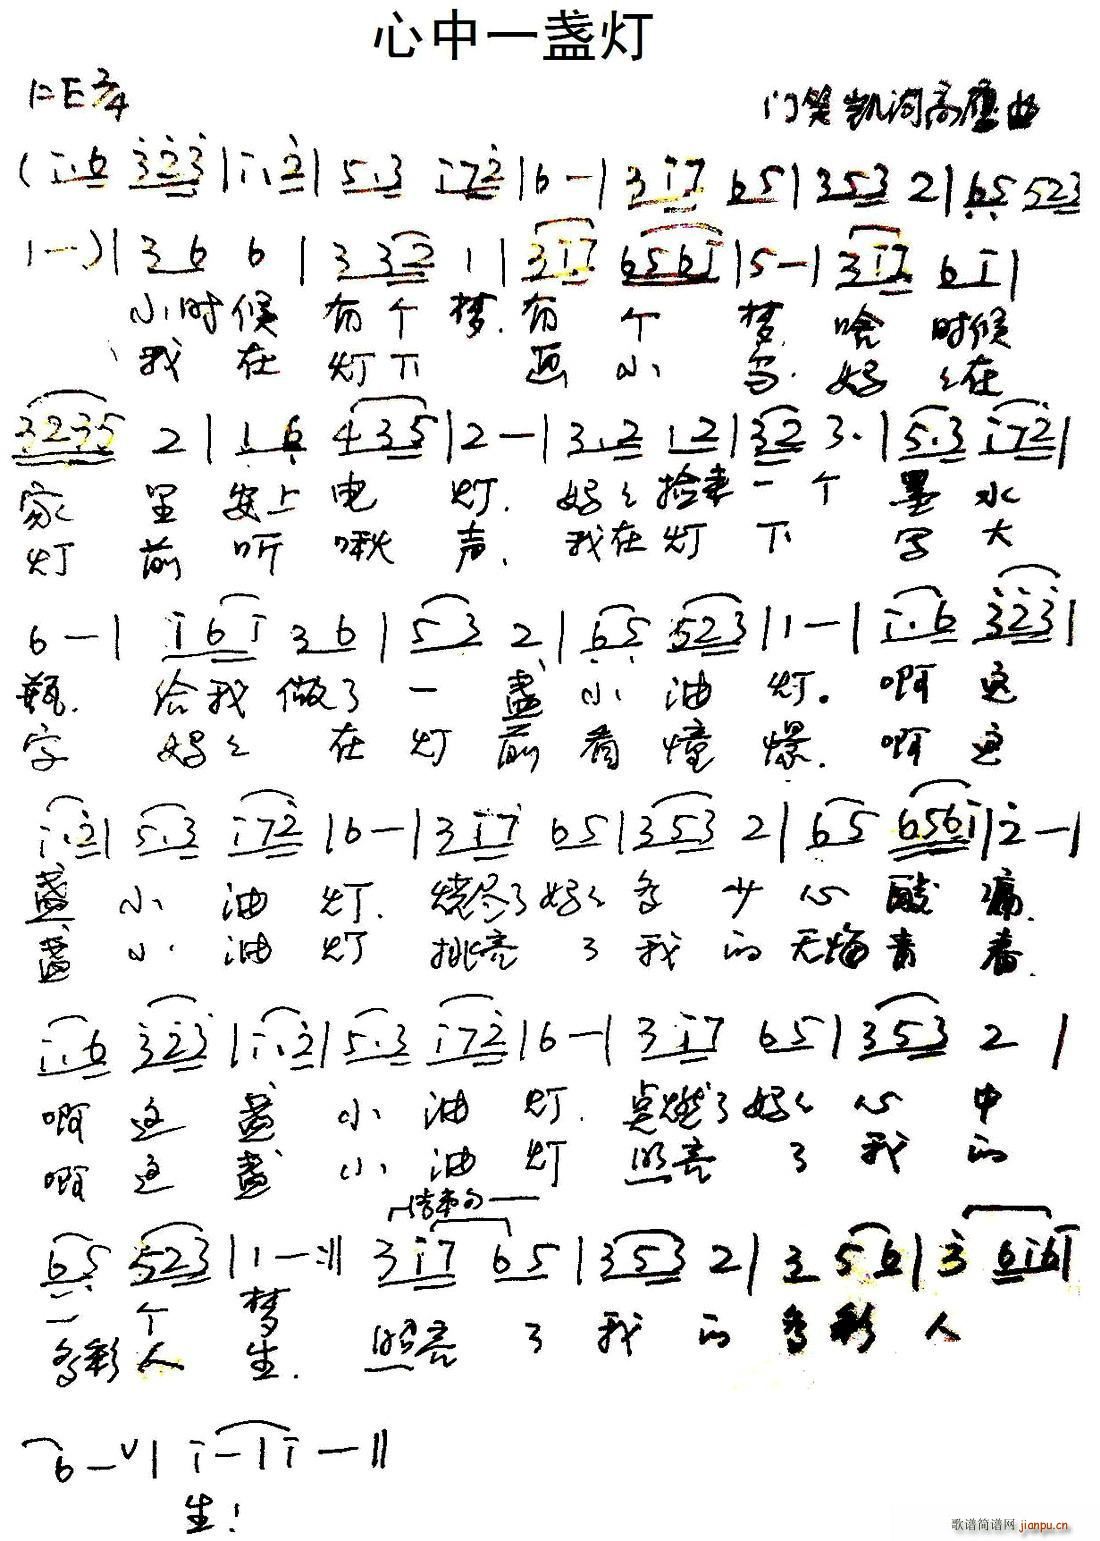 心中一盏灯
1=E 2/4
门笑凯词高 曲
(i·6 323|i·2|5·3 i72|6-|3i7 65|353 2|65 523
1-)|36 6|332 1|3i7 656i|5-|3i7 6i|
小时候有个梦.有个梦.啥时候
我在灯下画小鸟.妈妈在
3235 2|16 435|2-|3·2 12|32 3·|5·3 i72|
家里安上电灯.妈妈捡来一个墨水
灯前听 声.我在灯下写大
6-|i6i 36|53 2|65 523|1-|i·6 323|
瓶.给我做了一盏小油灯。啊这
字妈妈在灯前看憧憬.啊这
i·2|5·3 i72|6-|3i7 65|353 2|65 656i|2-|
盏小油灯.烧尽了妈妈多少心酸痛.
盏小油灯挑亮了我的无悔青春.
i·6 323|i·2|5·3 i72|6-|3i7 65|353 2|
啊这盏小油灯.点燃了妈妈心中
啊这盏小油灯照亮了我的
结束句
65 523|1-:‖ 3i7 65|353 2|3 56|3 6i6i
一个梦
多彩人生.照亮了我的多彩人
6-∨|i-|i-‖
生!
歌谱简谱网 jianpu.cn